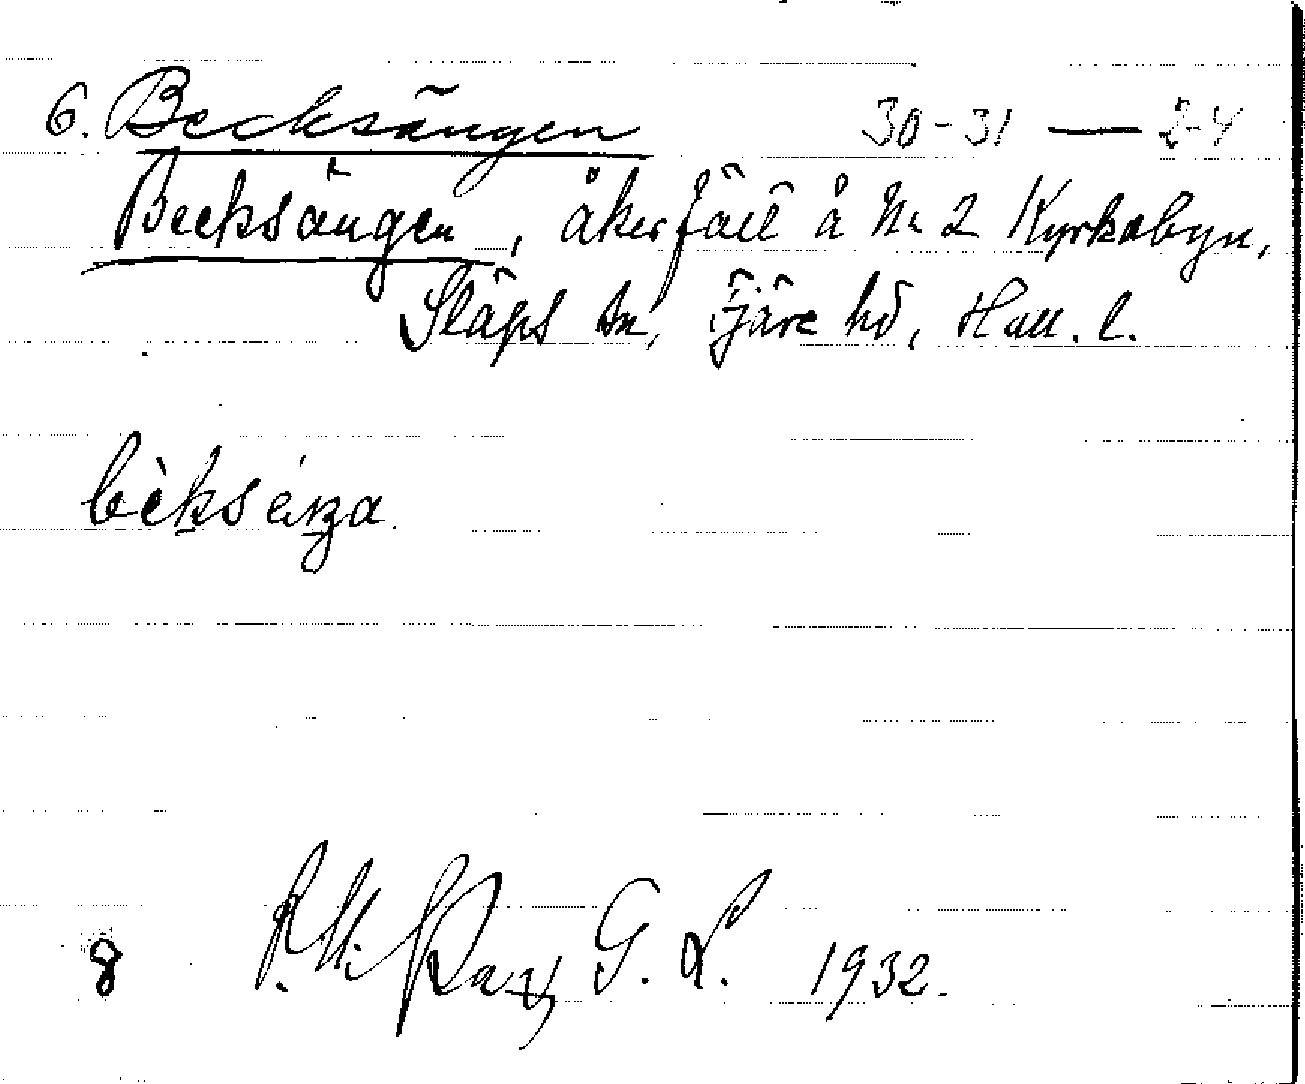 6. Becksängen 30-31 — 2-4
Becksängen, åkerfält å Nr 2 Kyrkobyn,
Släps sn, Fjäre hd, Hall. l.
bèkséŋa.
8 G. L. 1932.